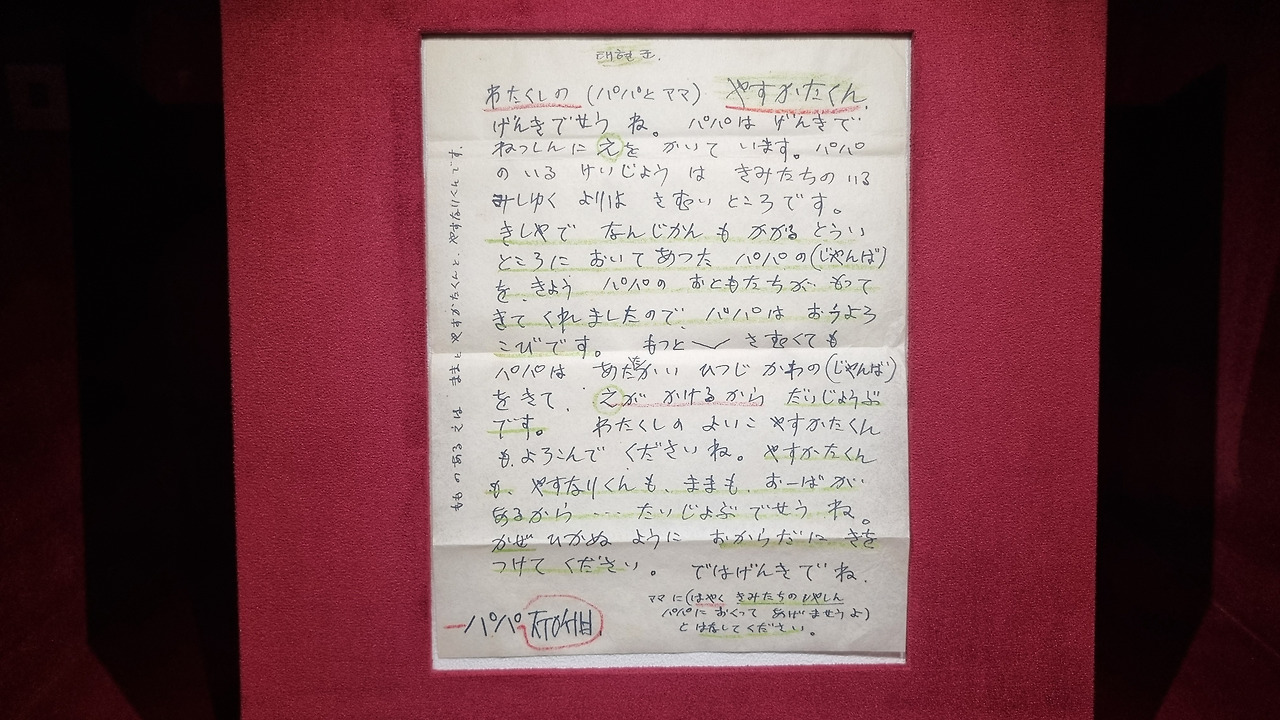 태현
わたくしの (パパとママ) やすかたくん。
げんきでせう ね。 パパは げんきで
ねっしんに えを かいて います。 パパ
の いる けいじょう は きみたちの いる
みしゆく よりは さむい ところです。
きしやで なんじかん も かかる とうい
ところに おいて あつた パパの(じゃんば)
を、きょう パパの おともたちが もって
きて くれましたので、パパは おうよろ
こびです。 もっと 〵 さむくても
パパは あたたかい ひつじ かわの (じゃんば)
を きて、 えが かけるから だいじょうぶ
です。 わたくしの よいこ やすかたくん
も、よろこんで くださいね。 やすかたくん
も、やすなりくんも、ままも、おーばが
あるから … たいじょぶ でせう ね。
かぜ ひかぬ ように おからだに きを
つけて ください。 ではげんきで ね。
ママに (はやく きみたちの しやしん
パパに おくって あげませうよ)
と はなしてください。
パパ ㅈㅜㅇㅅㅓㅂ
もものある えは ままと やすかたくんと、やすなりくんです。